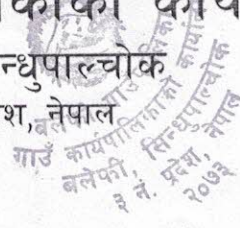 न्धुपाल्चोक
श, नेपाल
गाउँ कार्यपालिकाको कार्यालय
बलेफी, सिन्धुपाल्चोक
३ नं. प्रदेश, नेपाल
२०७३